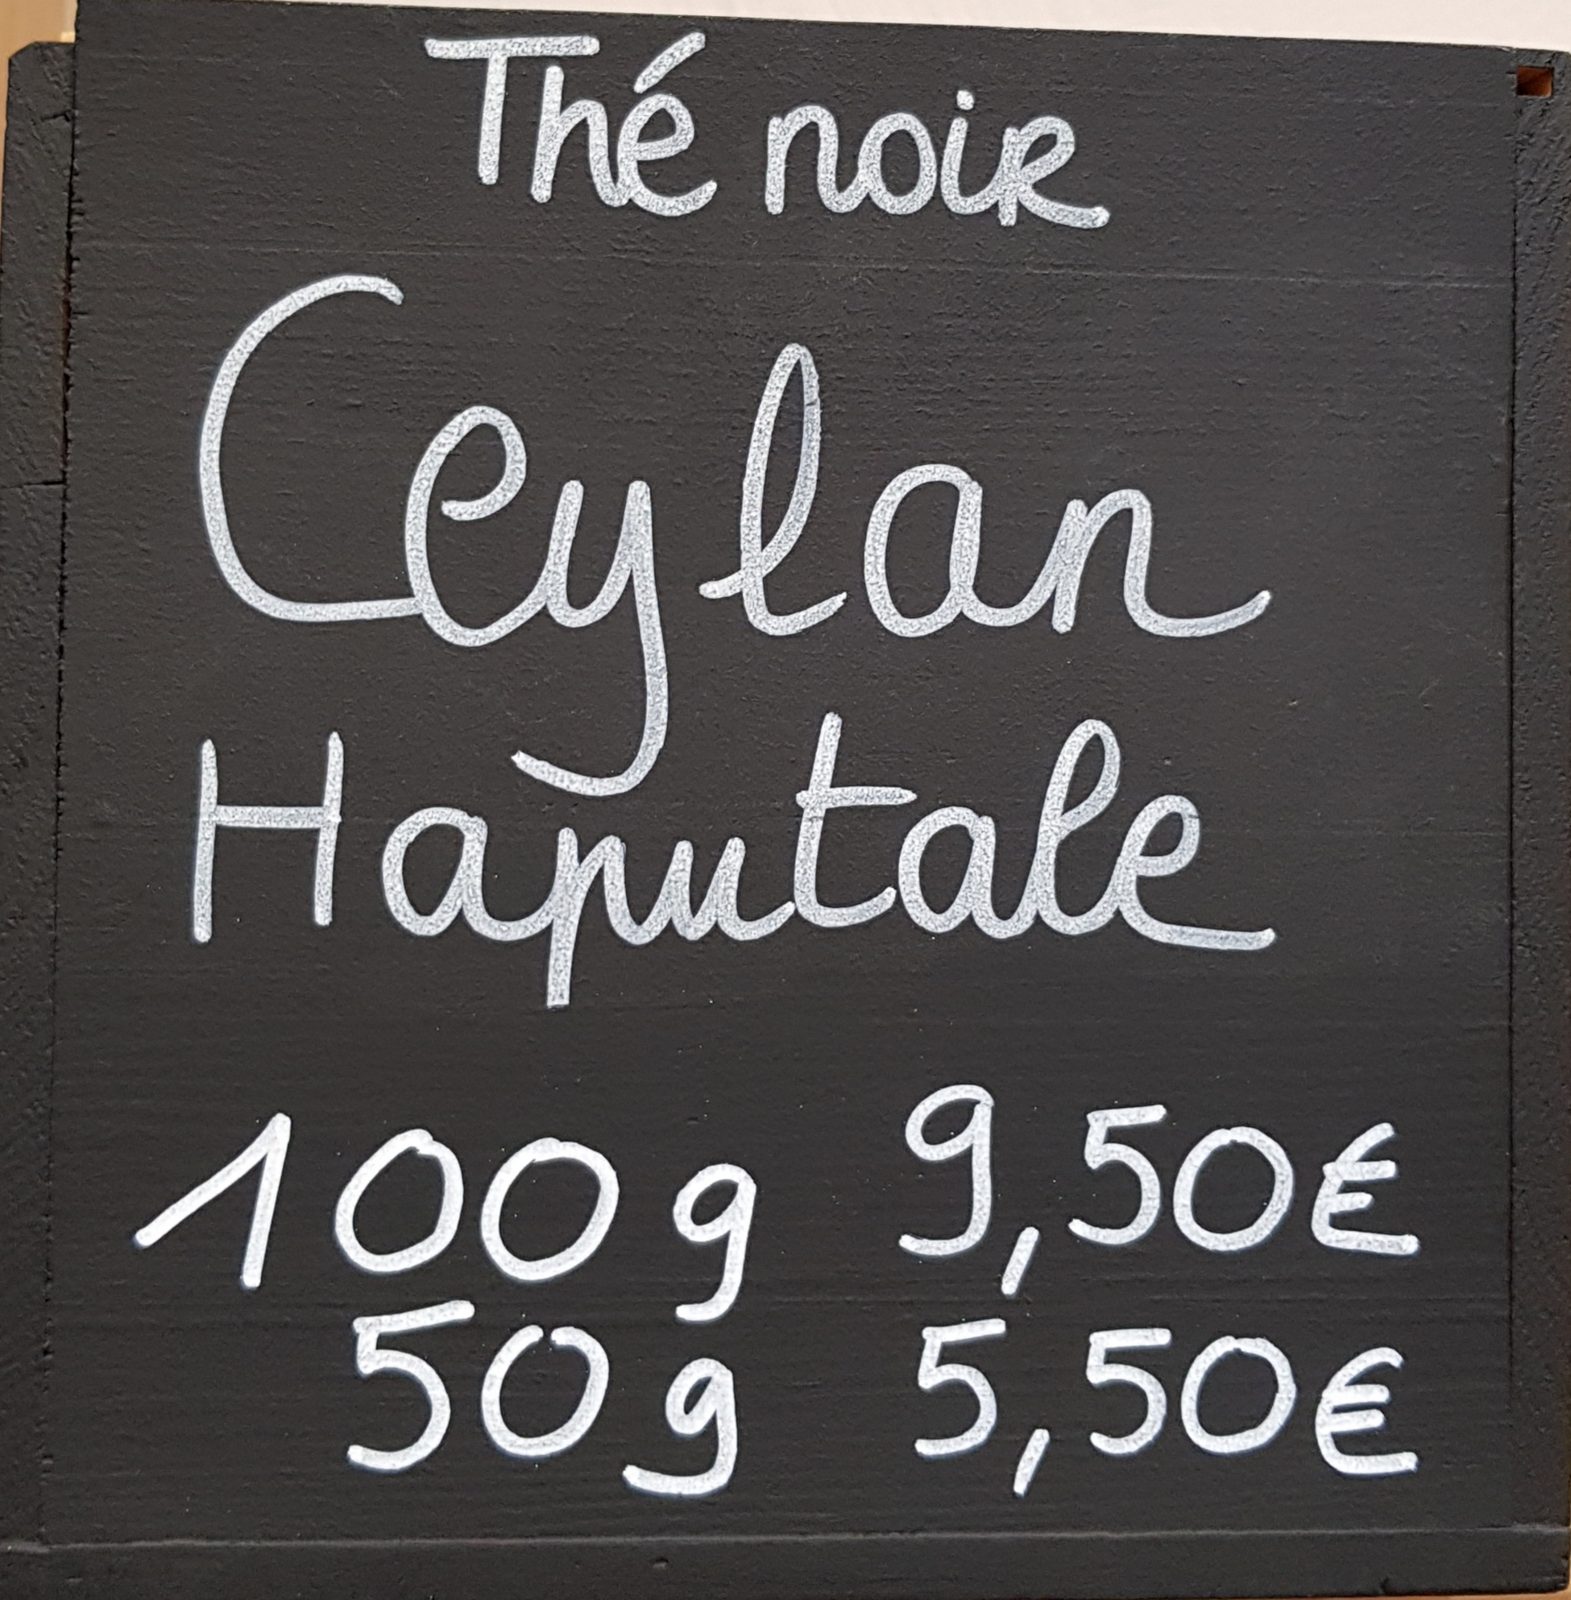 Thé noir
Ceylan
Haputale
100g 9,50€
50g 5,50€